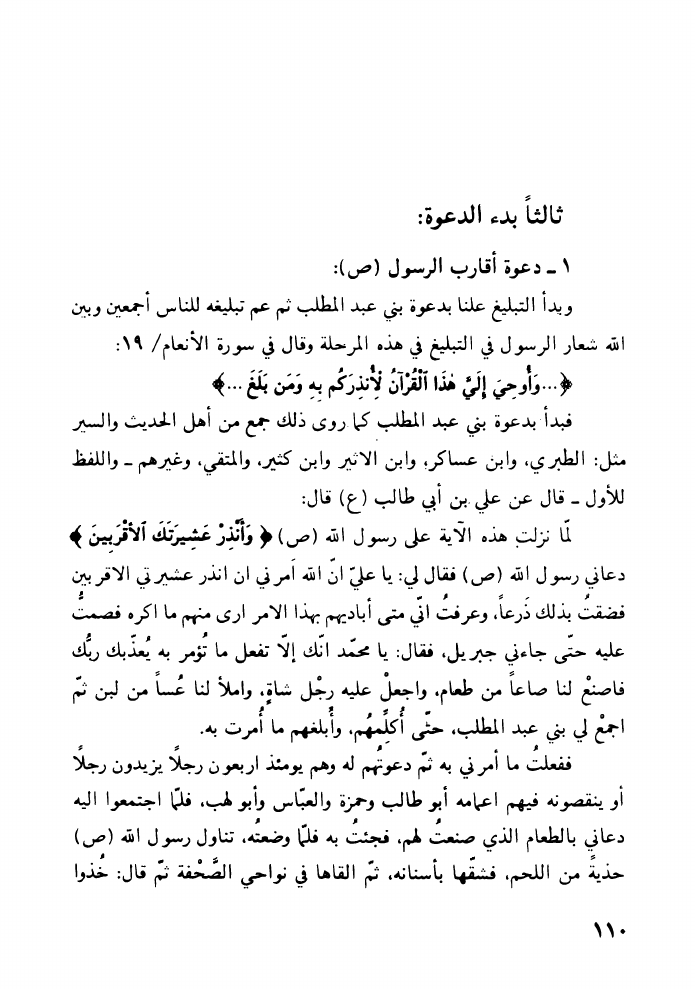 ثالثاً بدء الدعوة:
١ ـ دعوة أقارب الرسول (ص):
وبدأ التبليغ علنا بدعوة بني عبد المطلب ثم عم تبليغه للناس أجمعين وبين
الله شعار الرسول في التبليغ في هذه المرحلة وقال في سورة الأنعام/ ١٩:
﴿...وَأُوحِيَ إِلَيَّ هٰذَا ٱلْقُرْآنُ لْأُنذِرَكُم بِهِ وَمَن بَلَغَ ...﴾
فبدأ بدعوة بني عبد المطلب كما روى ذلك جمع من أهل الحديث والسير
مثل: الطبري، وابن عساكر، وابن الاثير وابن كثير، والمتقي، وغيرهم ـ واللفظ
للأول ـ قال عن علي بن أبي طالب (ع) قال:
لمّا نزلت هذه الآية على رسول الله (ص) ﴿ وَأَنْذِرْ عَشِيرَتَكَ ٱلأقْرَبِينَ ﴾
دعاني رسول الله (ص) فقال لي: يا عليّ انّ الله أمرني ان انذر عشيرتي الاقربين
فضقتُ بذلك ذَرعاً، وعرفتُ انّي متى أباديهم بهذا الامر ارى منهم ما اكره فصمتُّ
عليه حتّى جاءني جبريل، فقال: يا محمّد انّك إلاّ تفعل ما تُؤمر به يُعذّبك ربُّك
فاصنعْ لنا صاعاً من طعام، واجعلْ عليه رِجْل شاةٍ، واملأ لنا عُساً من لبن ثمّ
اجمعْ لي بني عبد المطلب، حتّى أُكلِّمهُم، وأُبلغهم ما أُمرت به.
ففعلتُ ما أمرني به ثمّ دعوتُهم له وهم يومئذ اربعون رجلاً يزيدون رجلاً
أو ينقصونه فيهم اعمامه أبو طالب وحمزة والعبّاس وأبو لهب، فلمّا اجتمعوا اليه
دعاني بالطعام الذي صنعتُ لهم، فجئتُ به فلمّا وضعتُه، تناول رسول الله (ص)
حذيةً من اللحم، فشقّها بأسنانه، ثمّ القاها في نواحي الصَّحْفة ثمّ قال: خُذوا
١١٠